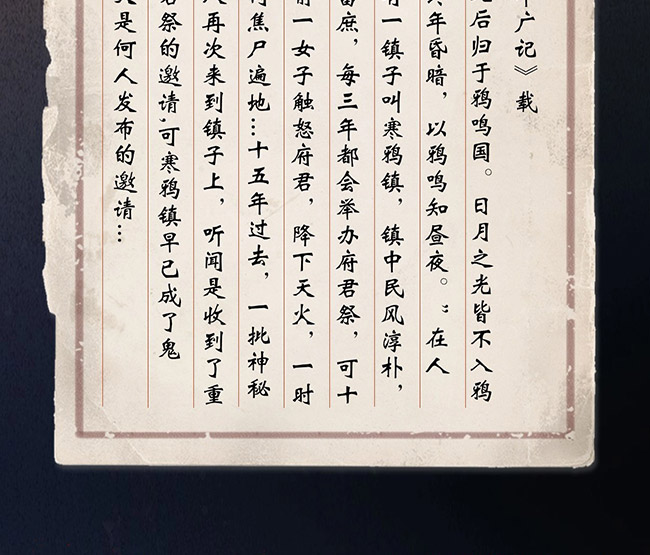 广记》载
后归于鸦鸣国。日月之光皆不入鸦
年昏暗，以鸦鸣知昼夜。”在人
一镇子叫寒鸦镇，镇中民风淳朴，
庶，每三年都会举办府君祭，可十
一女子触怒府君，降下天火，一时
焦尸遍地…十五年过去，一批神秘
再次来到镇子上，听闻是收到了重
祭的邀请,可寒鸦镇早已成了鬼
是何人发布的邀请…